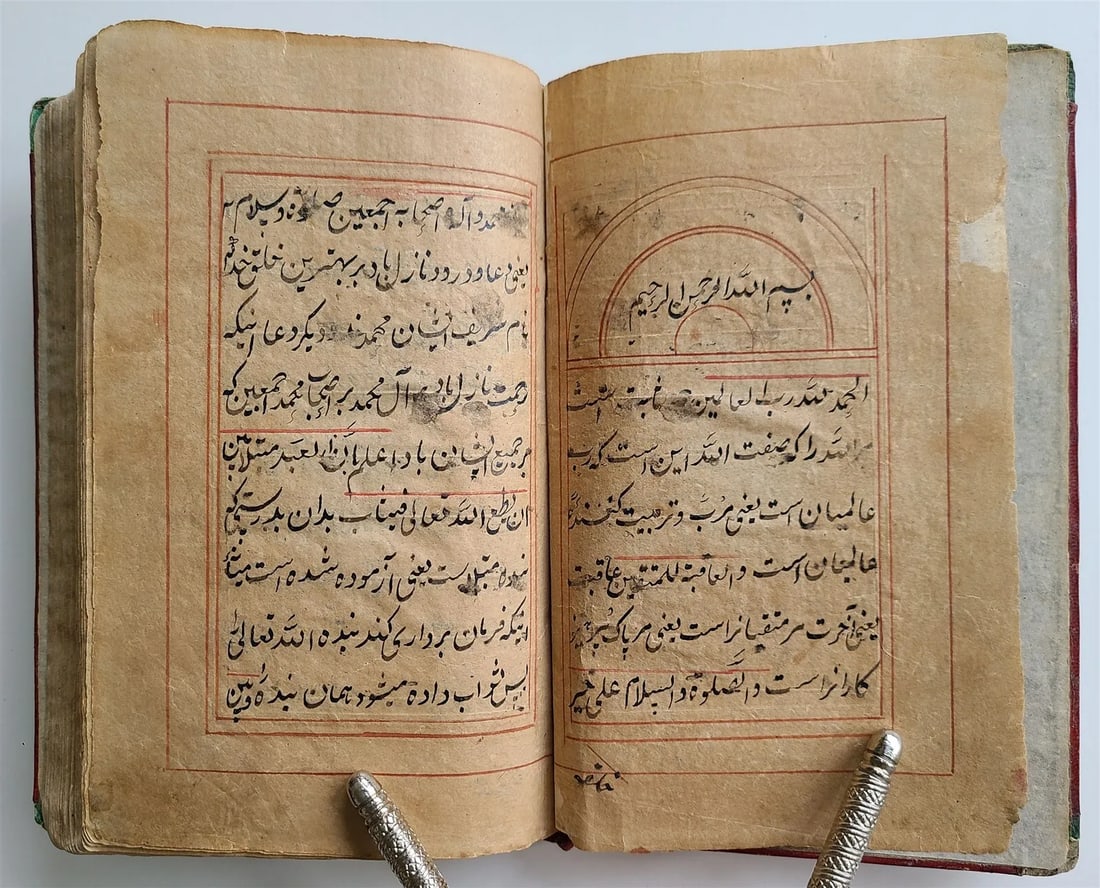 بسم الله الرحمن الرحیم
الحمد لله رب العالمین صفت است
مر الله را که صفت الله این است که رب
عالمیان است یعنی مرب و تربیت کنندۀ
عالمیان است والعاقبة للمتقین عاقبت
یعنی آخرت مر متقیانراست یعنی مر پاک پرهیز
کارانراست والصلوة والسلام علی خیر
محمد وآله اصحابه اجمعین صلوة وسلام
یعنی دعا ودرود نازل باد بر بهترین خلق خدای
نام شریف ایشان محمد دیگر دعا اینکه
رحمت نازل باد بر آل محمد بر اصحاب محمد اجمعین که
بر جمیع ایشان باد اعلم بان العبد مبتلا بین
ان یطیع الله تعالی فیثاب بدان بدرستیکه
بنده مبتلاست یعنی آزموده شده است میان
اینکه فرمان برداری کند بنده الله تعالی را
پس ثواب داده میشود همان بنده وبین